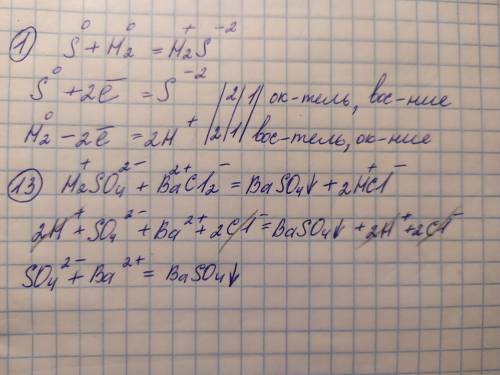 1 S⁰ + H₂⁰ = H₂⁺S⁻²
S⁰ + 2ē = S⁻² |2|1| ок-тель, вос-ние
H₂⁰ - 2ē = 2H⁺ |2|1| вос-тель, ок-ние
13 H₂⁺SO₄²⁻ + Ba²⁺Cl₂⁻ = BaSO₄↓ + 2H⁺Cl⁻
2H⁺ + SO₄²⁻ + Ba²⁺ + 2Cl⁻ = BaSO₄↓ + 2H⁺ + 2Cl⁻
SO₄²⁻ + Ba²⁺ = BaSO₄↓